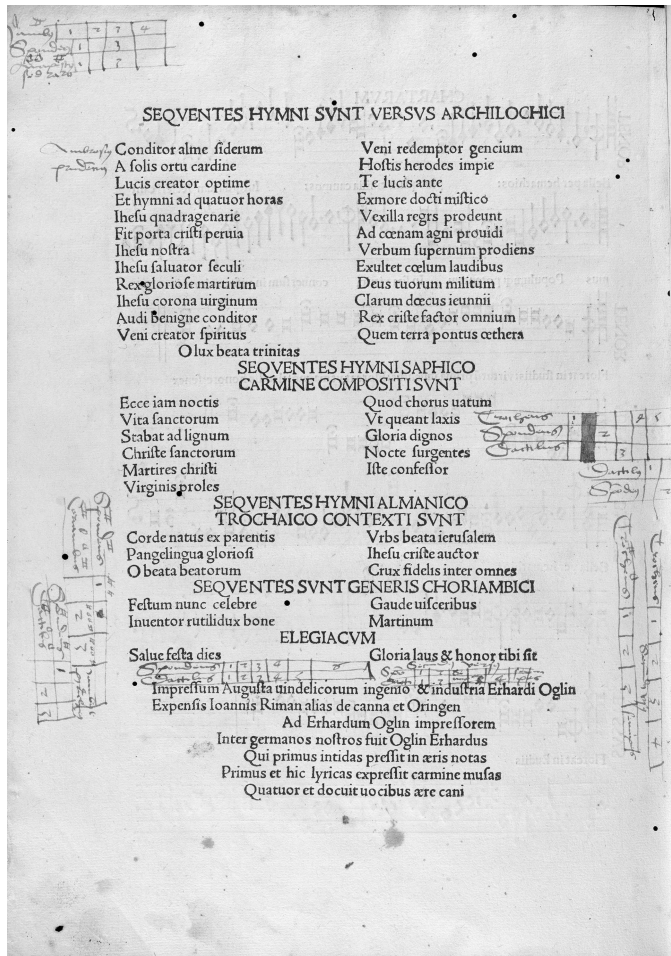 SEQVENTES HYMNI SVNT VERSVS ARCHILOCHICI
Conditor alme siderum
A solis ortu cardine
Lucis creator optime
Et hymni ad quatuor horas
Ihesu qnadragenarie
Fit porta cristi peruia
Ihesu nostra
Ihesu saluator seculi
Rex gloriose martirum
Ihesu corona uirginum
Audi benigne conditor
Veni creator spiritus
Veni redemptor gencium
Hostis herodes impie
Te lucis ante
Exmore docti mistico
Vexilla regrs prodeunt
Ad cœnam agni prouidi
Verbum supernum prodiens
Exultet cœlum laudibus
Deus tuorum militum
Clarum dœcus ieunnii
Rex criste factor omnium
Quem terra pontus œthera
O lux beata trinitas
SEQVENTES HYMNI SAPHICO
CARMINE COMPOSITI SVNT
Ecce iam noctis
Vita sanctorum
Stabat ad lignum
Christe sanctorum
Martires christi
Virginis proles
Quod chorus uatum
Vt queant laxis
Gloria dignos
Nocte surgentes
Iste confessor
SEQVENTES HYMNI ALMANICO
TROCHAICO CONTEXTI SVNT
Corde natus ex parentis
Pangelingua gloriosi
O beata beatorum
Vrbs beata ierusalem
Ihesu criste auctor
Crux fidelis inter omnes
SEQVENTES SVNT GENERIS CHORIAMBICI
Festum nunc celebre
Inuentor rutilidux bone
Gaude uisceribus
Martinum
ELEGIACVM
Salue festa dies
Gloria laus & honor tibi sit
Impressum Augusta uindelicorum ingenio & industria Erhardi Oglin
Expensis Ioannis Riman alias de canna et Oringen
Ad Erhardum Oglin impressorem
Inter germanos nostros fuit Oglin Erhardus
Qui primus intidas pressit in æris notas
Primus et hic lyricas expressit carmine musas
Quatuor et docuit uocibus ære cani